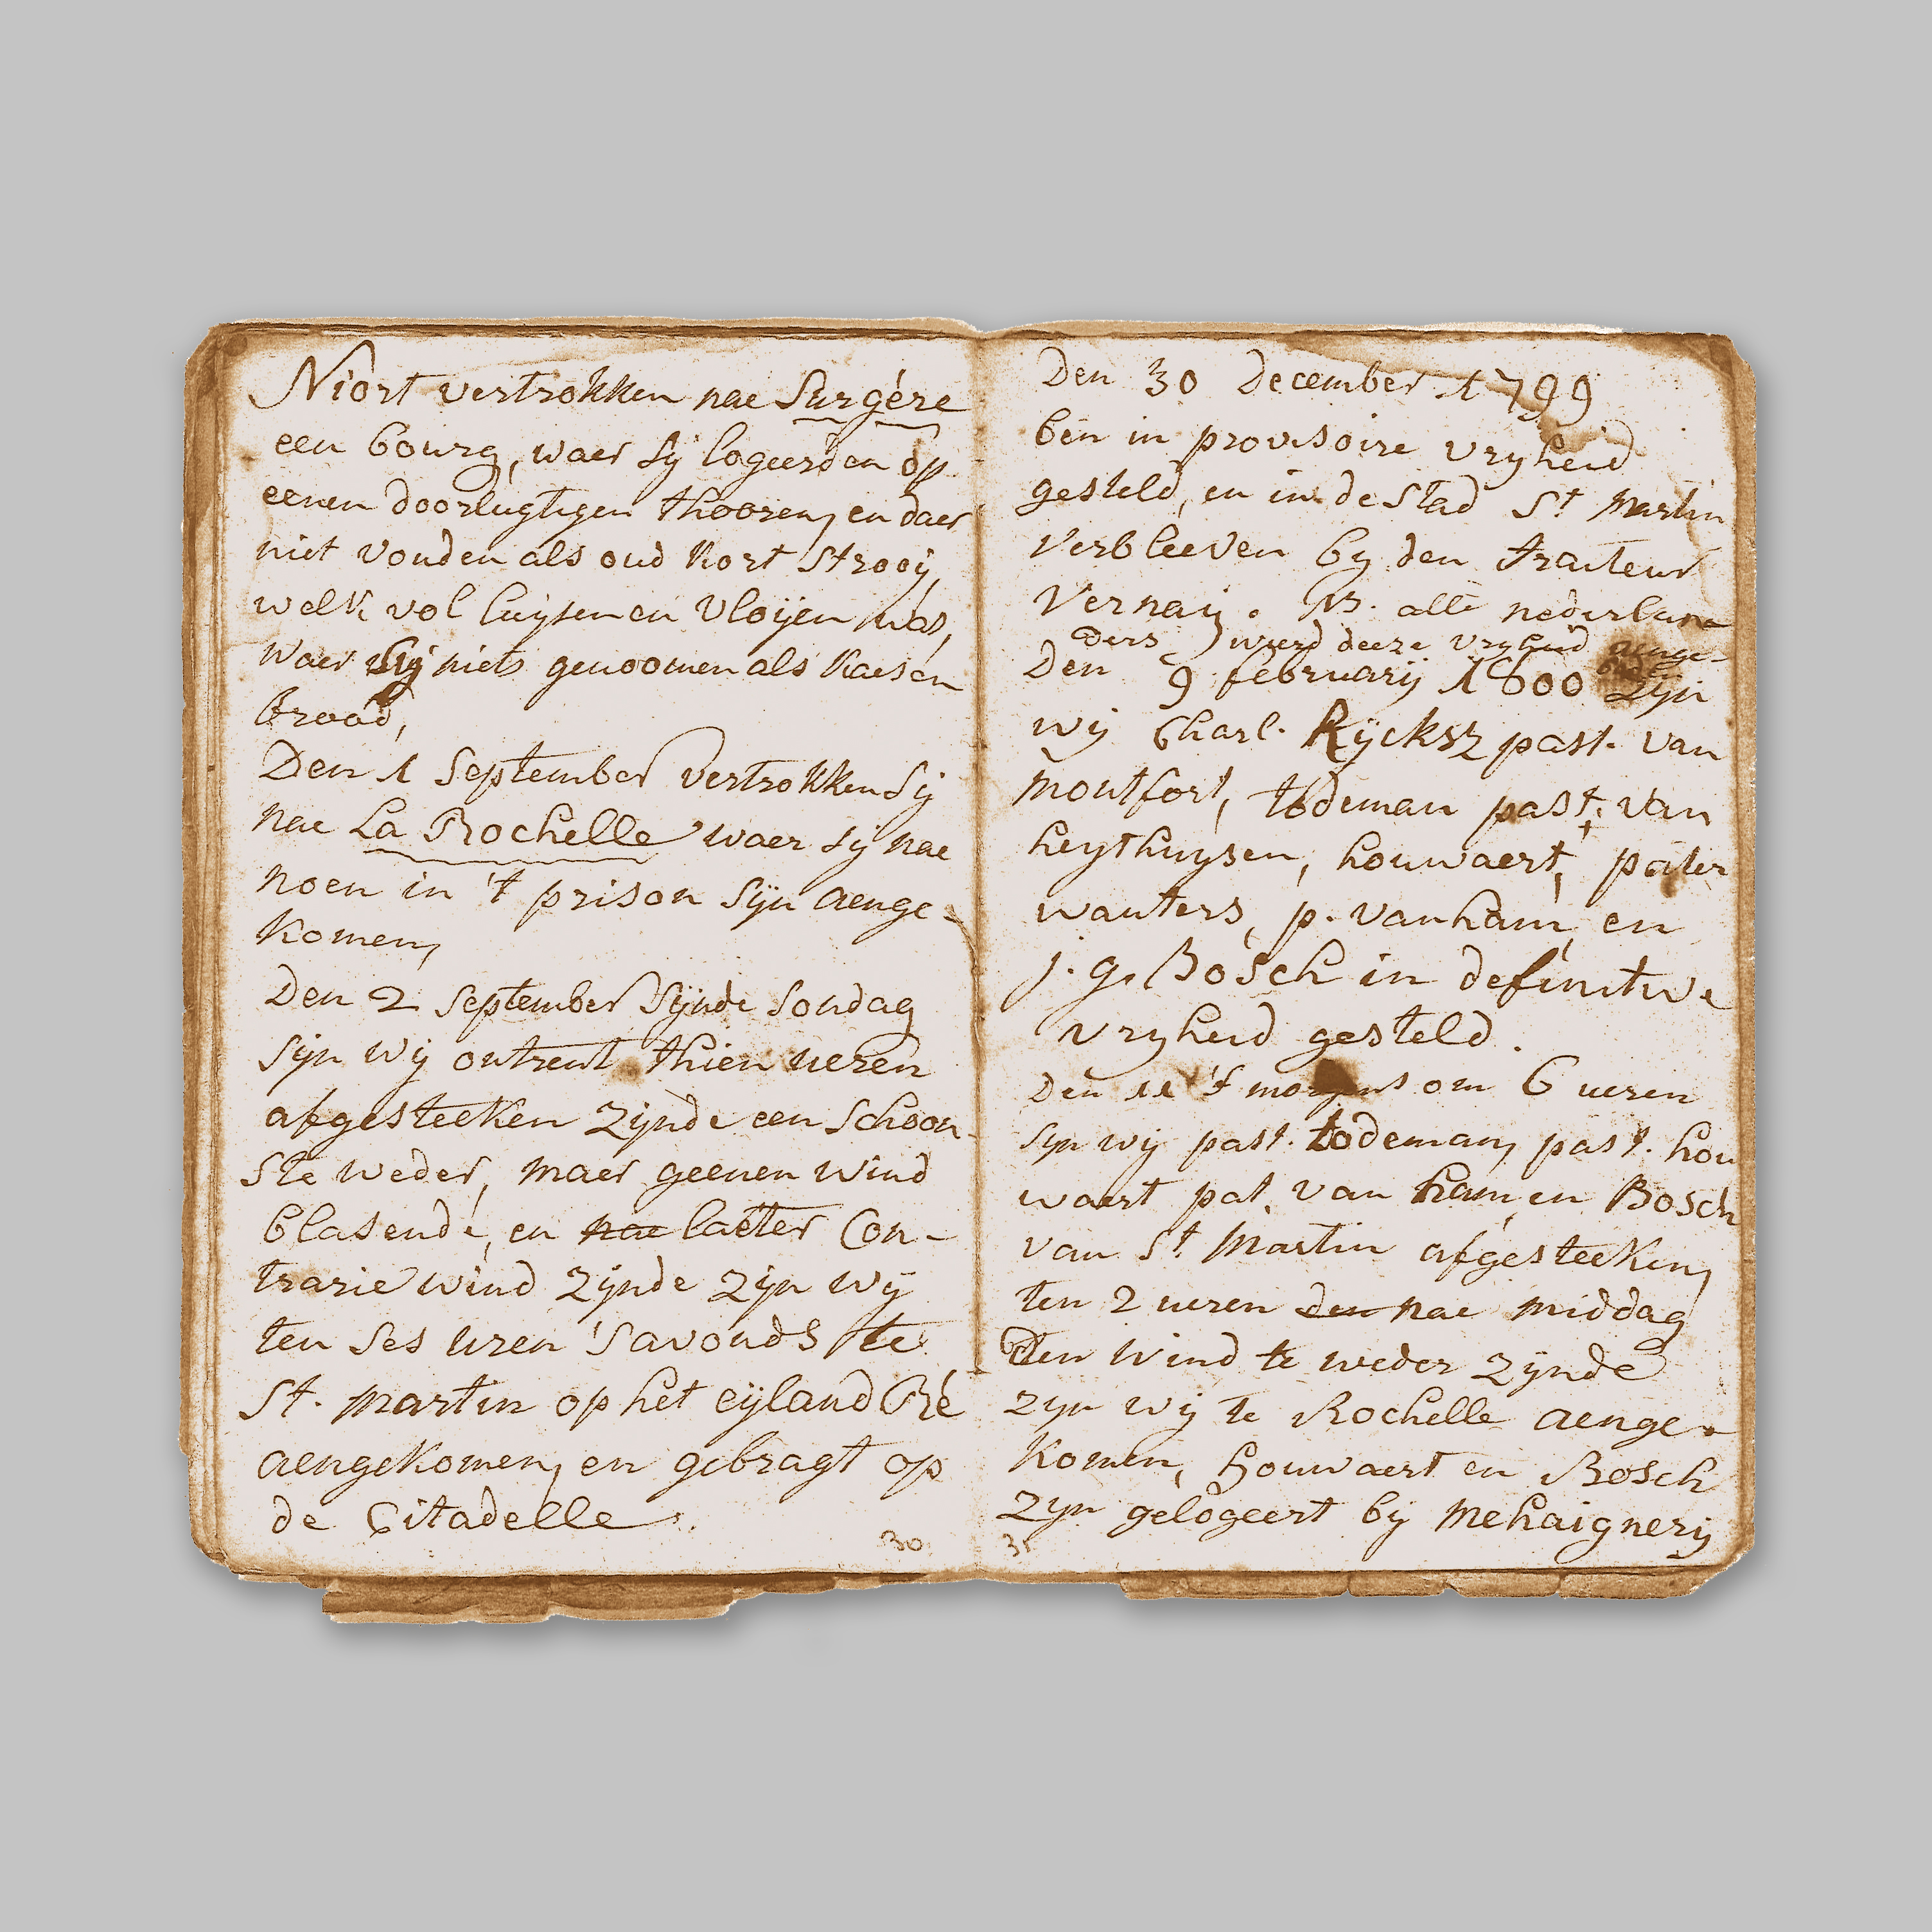 Niort vertrokken nae Surgére
een bourg, waer sy logeerden op
eenen doorlugtigen thooren, en daer
niet vonden als oud kort strooÿ,
welk vol luysen en vloÿen was,
waer sy niets genoomen als kaes en
brood,
Den 1 september vertrokken sy
nae La Rochelle waer sy nae
noen in 't prison sÿn aenge-
komen,
Den 2 september sÿnde sondag
sÿn wÿ ontrent thien ueren
afgesteeken zÿnde een schoon-
ste weder, maer geenen wind
blasende, en nae laeter con-
trarie wind zÿnde zÿn wÿ
ten ses uren 's avonds te
St. martin op het eÿland Ré
aengekomen, en gebragt op
de Citadelle.
30
Den 30 December 1799
ben in provisoire vryheid
gesteld, en in de stad St martin
verbleeven by den traiteur
Vernaÿ. NB. alle nederlan-
ders wierd deeze vryheid aenge-
boden
Den 9 februarÿ 1800 zÿn
wÿ Charl. Rÿcksz past. van
montfort, todeman past. van
heythuysen, houwaert, pater
wauters, p. van ham, en
j. g. Bosch in definitive
vryheid gesteld.
Den 11 's morgens om 6 ueren
syn wÿ past. todeman, past. hou
waert pat. van ham, en Bosch
van St. Martin afgesteeken,
ten 2 ueren den nae middag
Den wind te weder zÿnde
zyn wÿ te Rochelle aenge-
komen, houwaert en Bosch
zyn gelogeert bÿ mehaignerÿ
31